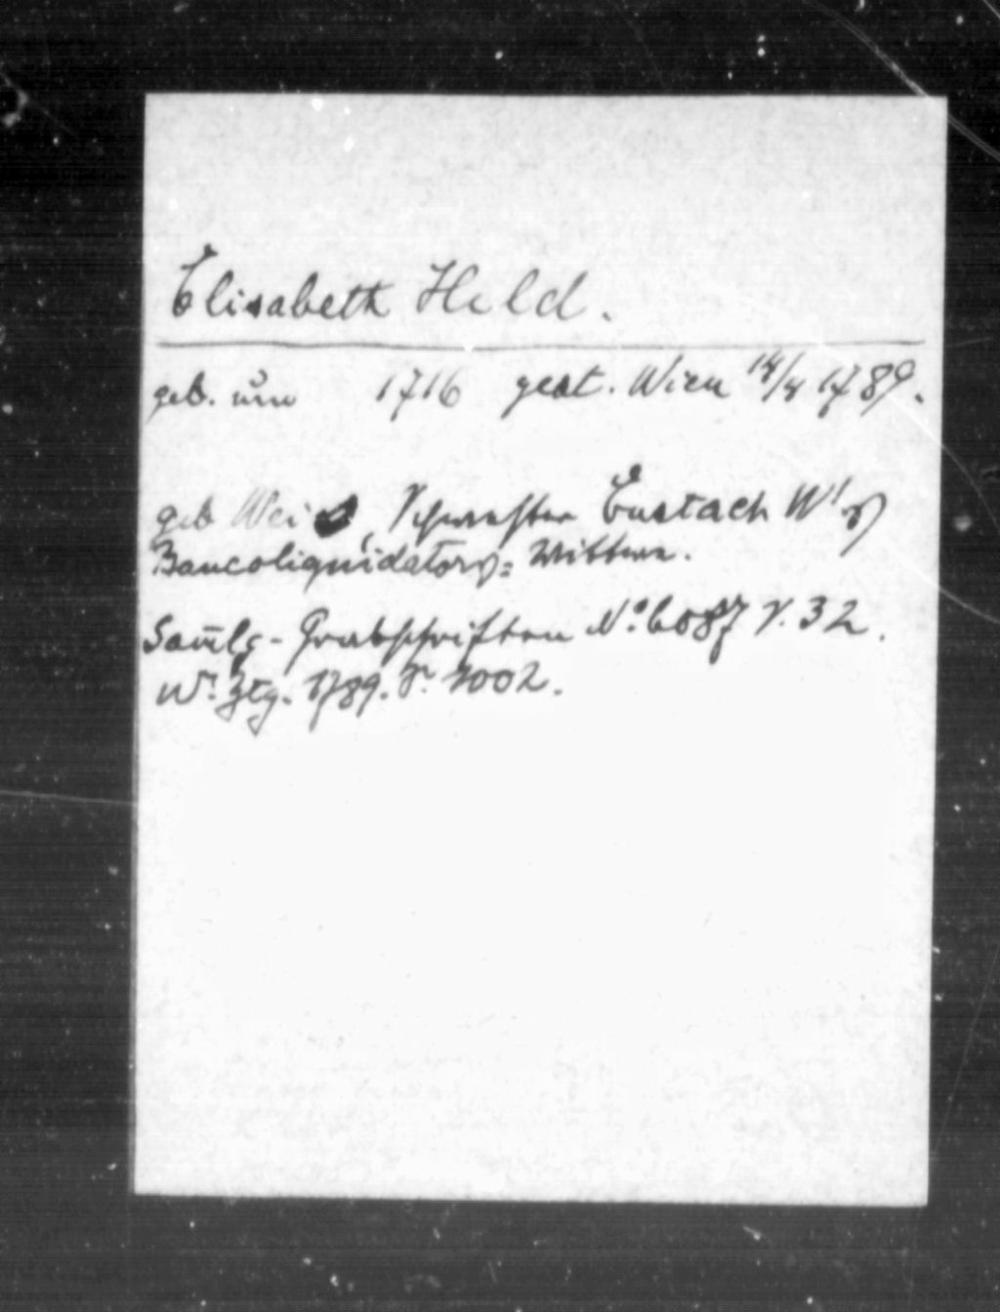 Elisabeth Held.
geb. um 1716 gest. Wien 14/4 1789.
geb Weiß, Schwester Eustach W's
Bancoliquidators= Wittwe.
Samlg - Grabschriften No. 6087 S. 32.
Wr. Ztg. 1789. S. 1002.